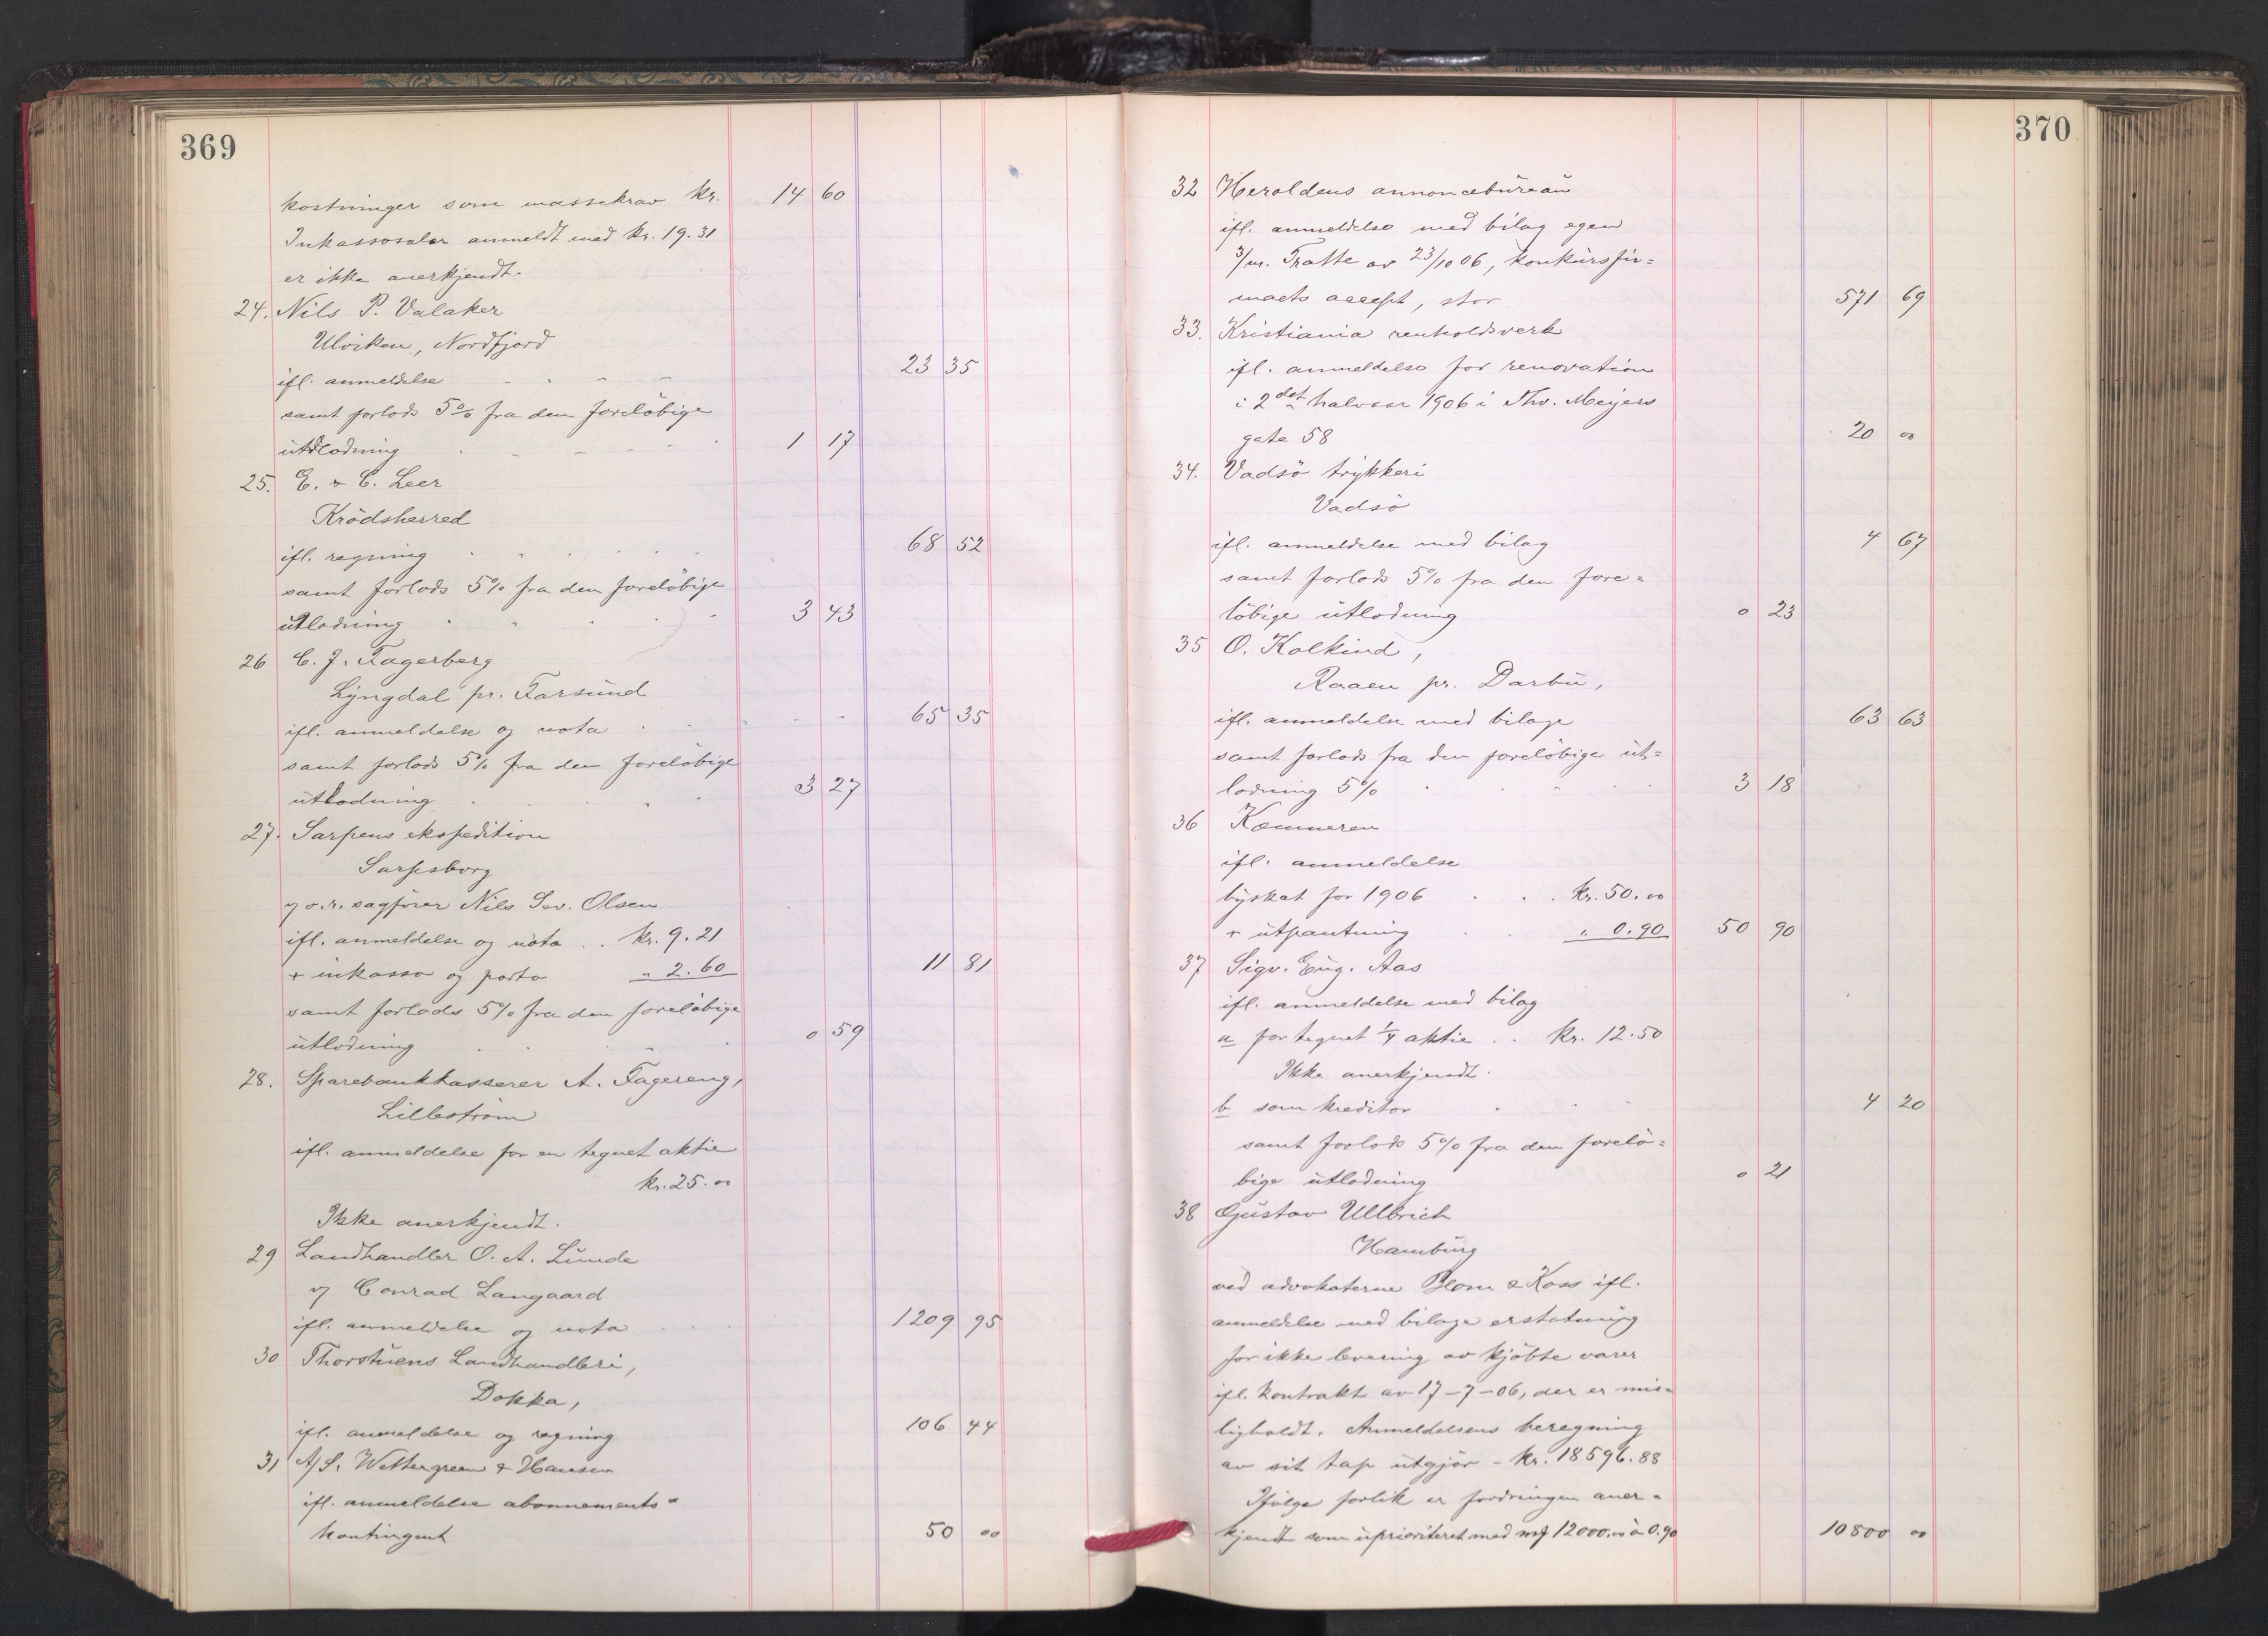 369
kostninger som massekrav kr. 14 60
Inkassosalær anmeldt med kr. 19.31
er ikke anerkjendt.
24. Nils P. Valaker
Ulviken, Nordfjord
ifl. anmeldelse 23 35
samt forlods 5% fra den foreløbige
utlodning 1 17
25. E. & C. Leer
Krödsherred
ifl. regning 68 52
samt forlods 5% fra den foreløbige
utlodning 3 43
26 C. J. Fagerberg
Lyngdal pr. Farsund
ifl. anmeldelse og nota 65 35
samt forlods 5% fra den foreløbige
utlodning 3 27
27. Sarpens ekspedition
Sarpsborg
v/ o.r. sagfører Nils Sev. Olsen
ifl. anmeldelse og nota . . kr. 9.21
+ inkasso og porto " 2.60 11 81
samt forlods 5% fra den foreløbige
utlodning 0 59
28. Sparebankkasserer A. Fagereng,
Lilleström
ifl. anmeldelse for en tegnet aktie
kr. 25.00
Ikke anerkjendt.
29 Landhandler O. A. Lunde
v/ Conrad Langaard
ifl. anmeldelse og nota 1209 95
30 Thorstuens Landhandleri,
Dokka,
ifl. anmeldelse og regning 106 44
31 A/S. Wettergreen & Hansen
ifl. anmeldelse abonnements-
kontingent 50 00
370
32 Heroldens annoncebureau
ifl. anmeldelse med bilag egen
3/m. Tratte av 23/10 06, konkursfir=
maets accept, stor 571 69
33. Kristiania renholdsverk
ifl. anmeldelse for renovation
i 2det halvaar 1906 i Thv. Meyers
gate 58 20 00
34. Vadsö trykkeri
Vadsö
ifl. anmeldelse med bilag 4 67
samt forlods 5% fra den fore=
löbige utlodning 0 23
35 O. Kolkind,
Raaen pr. Darbu,
ifl. anmeldelse med bilage 63 63
samt forlods fra den foreløbige ut=
lodning 5% 3 18
36 Kæmneren
ifl. anmeldelse
byskat for 1906 . . . kr. 50.00
+ utpantning . . " 0.90 50 90
37 Sigv. Eug. Aas
ifl. anmeldelse med bilag
a for tegnet 1/4 aktie . . kr. 12.50
Ikke anerkjendt.
b som kreditor 4 20
samt forlods 5% fra den forelö=
bige utlodning 0 21
38 Gustav Ullbrich
Hamburg
ved advokaterne Blom & Koss ifl.
anmeldelse med bilage erstatning
for ikke levering av kjöbte varer
ifl. kontrakt av 17-7-06, der er mis=
ligholdt. Anmeldelsens beregning
av sit tap utgjör - kr. 18596.88
Ifølge forlik er fordringen aner=
kjendt som uprioriteret med mf 12000.00 à 0.90 10800 00